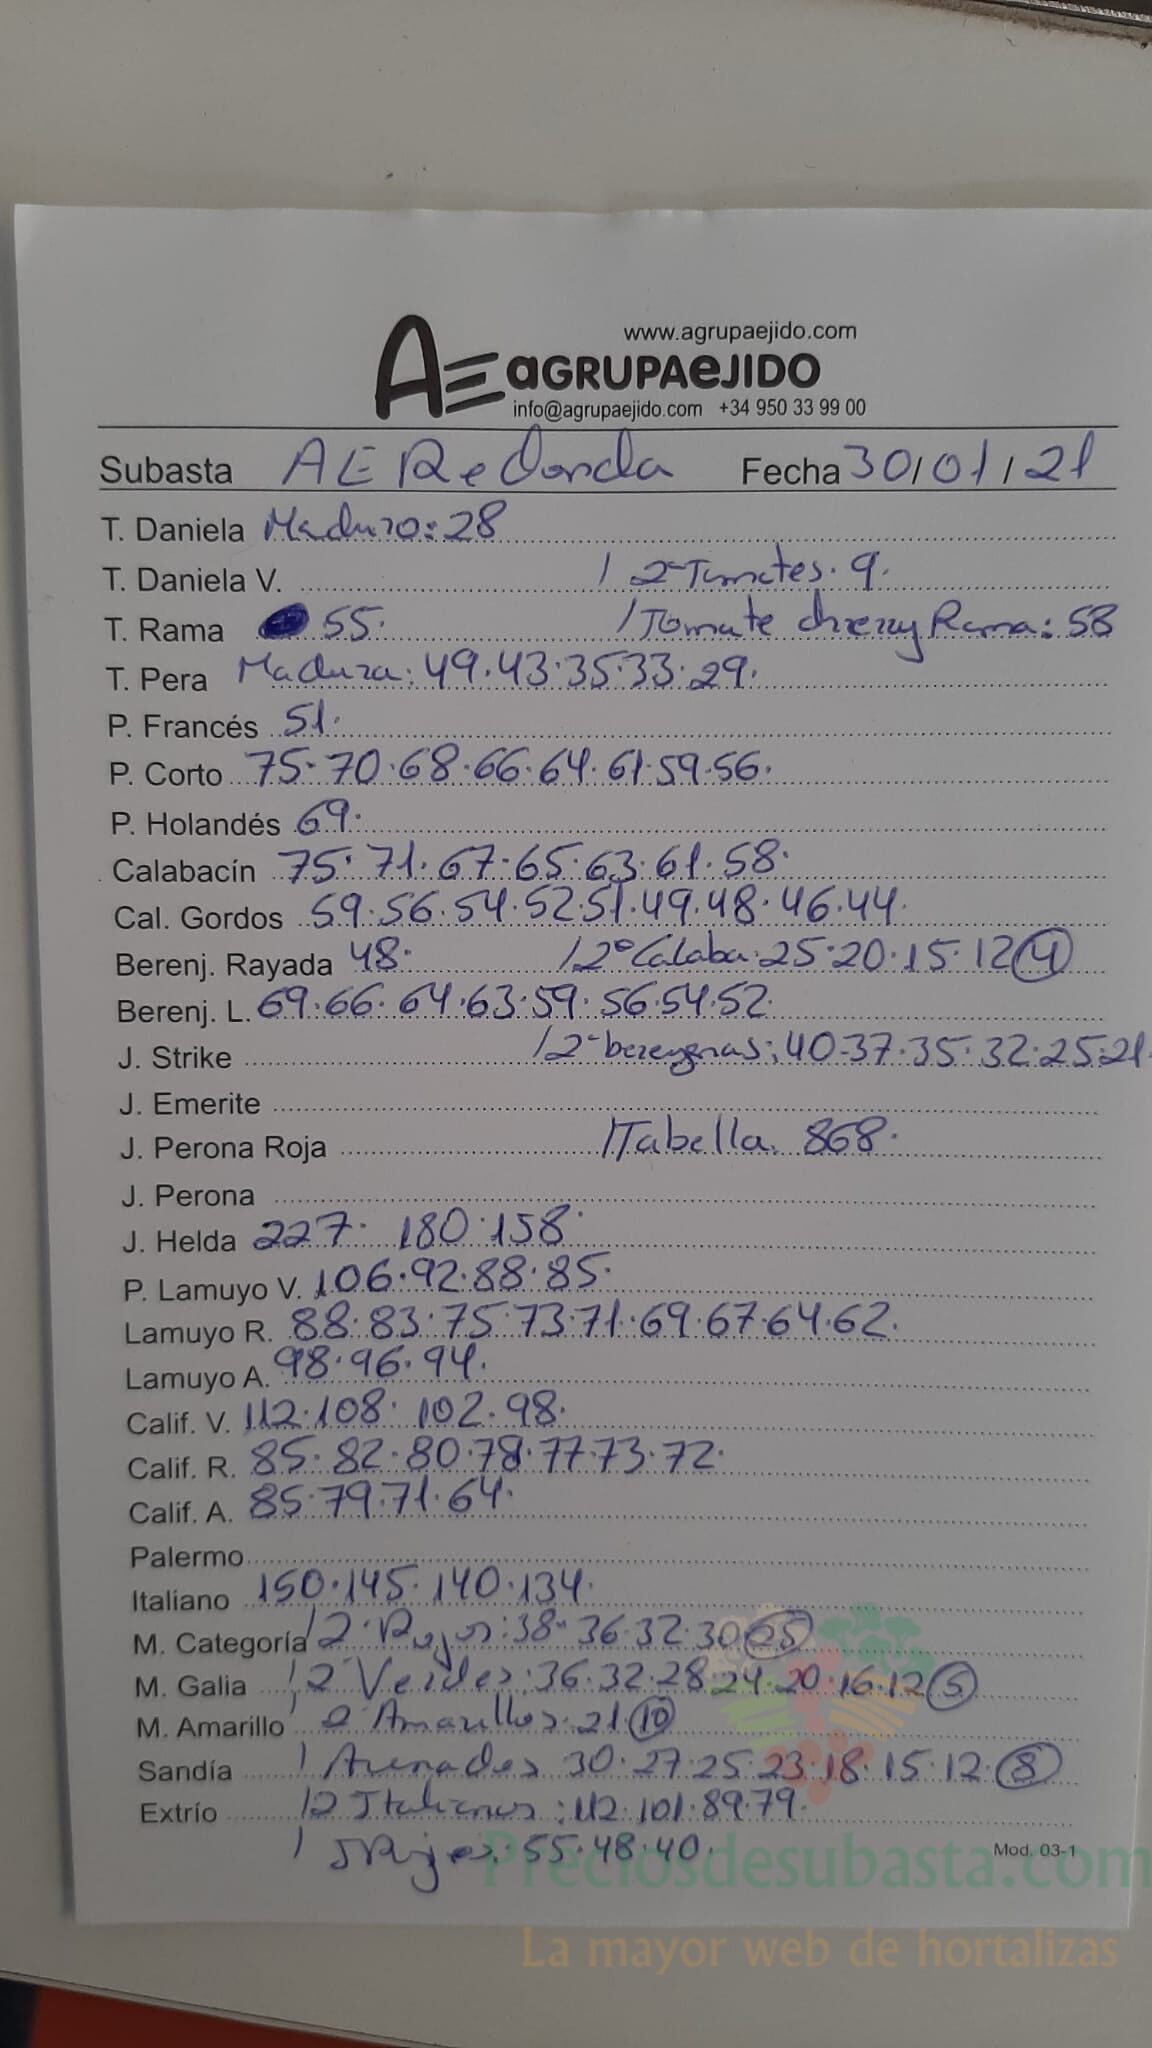 www.agrupaejido.com
AE aGRUPAeJIDO
info@agrupaejido.com +34 950 33 99 00
Subasta AE Redonda Fecha 30/01/21
T. Daniela Maduro: 28
T. Daniela V. / 2ª Tomates. 9.
T. Rama 55. / Tomate cherry Rama: 58
T. Pera Madura: 49.43.35.33.29.
P. Francés 51.
P. Corto 75.70.68.66.64.61.59.56.
P. Holandés 69.
Calabacín 75.71.67.65.63.61.58.
Cal. Gordos 59.56.54.52.51.49.48.46.44.
Berenj. Rayada 48. / 2º Calaba: 25.20.15.12 (4)
Berenj. L. 69.66.64.63.59.56.54.52.
J. Strike / 2ª berengenas: 40.37.35.32.25.21.
J. Emerite
J. Perona Roja / Tabella. 868.
J. Perona
J. Helda 227. 180.158.
P. Lamuyo V. 106.92.88.85.
Lamuyo R. 88.83.75.73.71.69.67.64.62.
Lamuyo A. 98.96.94.
Calif. V. 112.108. 102.98.
Calif. R. 85.82.80.78.77.73.72.
Calif. A. 85.79.71.64.
Palermo
Italiano 150.145.140.134.
M. Categoría / 2ª Rojos: 38.36.32.30 (25)
M. Galia / 2ª Verdes: 36.32.28.24.20.16.12 (5)
M. Amarillo / 2 Amarillos. 21 (10)
Sandía / Asurados 30.27.25.23.18.15.12. (8)
Extrío / 2 Italianos: 112.101.89.79.
/ 55.48.40.
Mod. 03-1
Preciosdesubasta.com
La mayor web de hortalizas